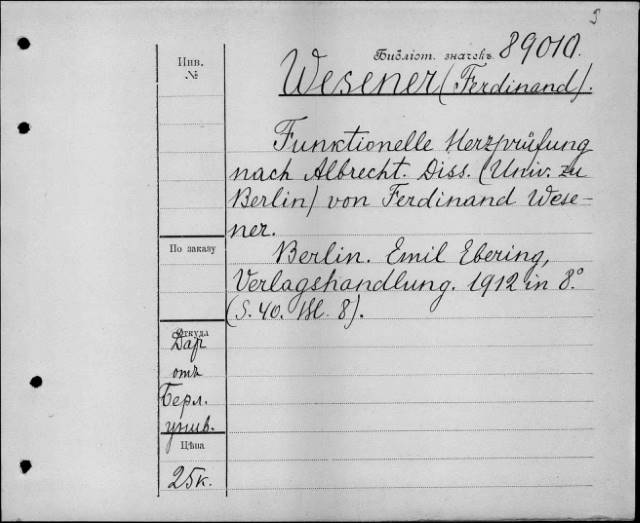 5
Библіот. значекъ 89010.
Инв.
№
Wesener (Ferdinand).
Funktionelle Herzprüfung
nach Albrecht. Diss. (Univ. zu
Berlin) von Ferdinand Wese-
ner.
По заказу
Berlin. Emil Ebering,
Verlagshandlung. 1912 in 8°
(S. 40. Bl. 8).
Откуда
Дар
отъ
Берл.
унив.
Цѣна
25к.